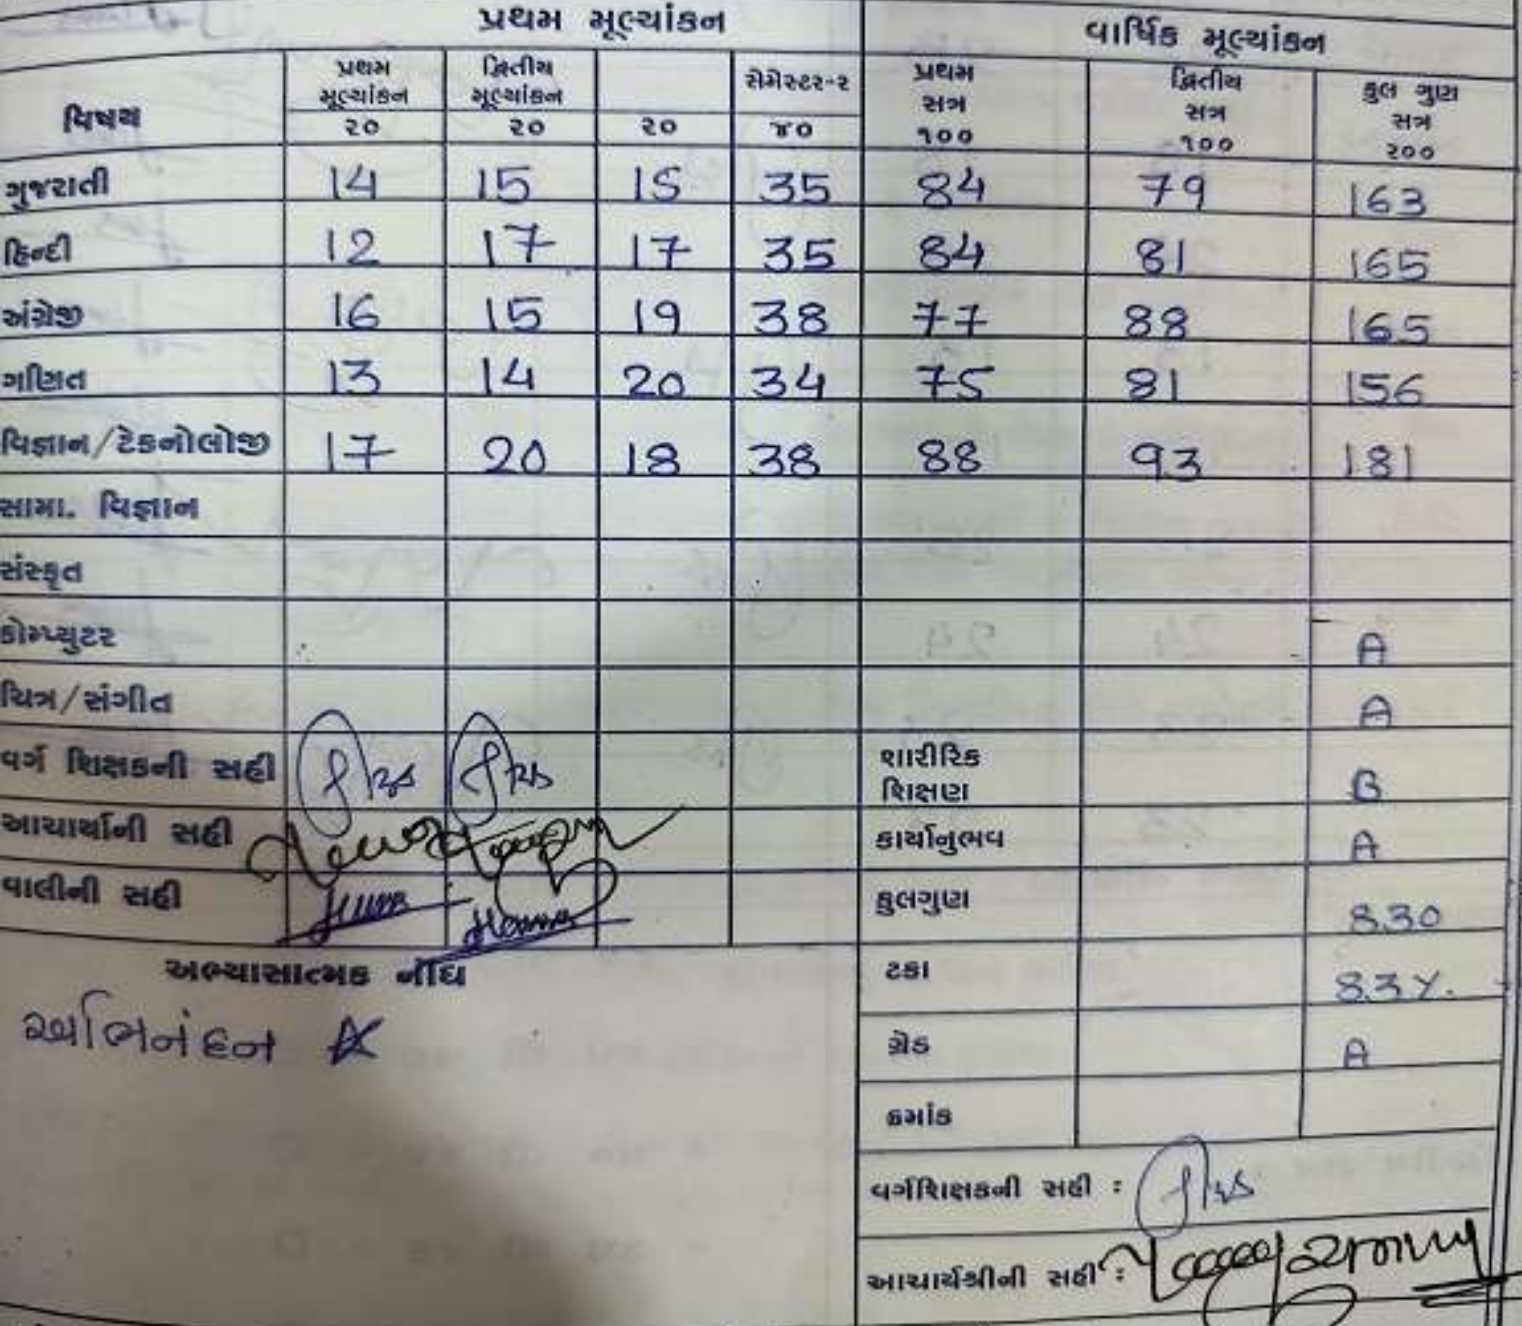 પ્રથમ મૂલ્યાંકન વાર્ષિક મૂલ્યાંકન
વિષય પ્રથમ મૂલ્યાંકન દ્વિતીય મૂલ્યાંકન સેમેસ્ટર-૨ પ્રથમ સત્ર દ્વિતીય સત્ર કુલ ગુણ સત્ર
૨૦ ૨૦ ૨૦ ૪૦ ૧૦૦ ૧૦૦ ૨૦૦
ગુજરાતી 14 15 15 35 84 79 163
હિન્દી 12 17 17 35 84 81 165
અંગ્રેજી 16 15 19 38 77 88 165
ગણિત 13 14 20 34 75 81 156
વિજ્ઞાન/ટેકનોલોજી 17 20 18 38 88 93 181
સામા. વિજ્ઞાન
સંસ્કૃત
કોમ્પ્યુટર A
ચિત્ર/સંગીત A
વર્ગ શિક્ષકની સહી શારીરિક શિક્ષણ B
આચાર્યાની સહી કાર્યાનુભવ A
વાલીની સહી કુલગુણ 830
અભ્યાસાત્મક નોંધ ટકા 83%.
અભિનંદન ગ્રેડ A
ક્રમાંક
વર્ગશિક્ષકની સહી :
આચાર્યશ્રીની સહી :